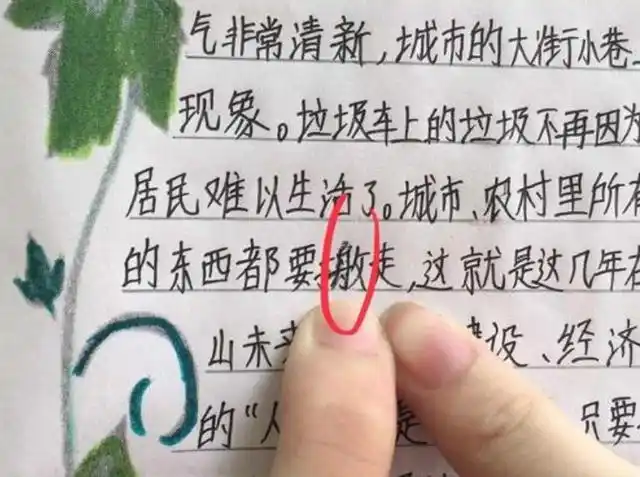 气非常清新，城市的大街小巷
现象。垃圾车上的垃圾不再因为
居民难以生活了。城市、农村里所有
的东西都要走，这就是这几年在
山未来建设、经济
的“人是只要